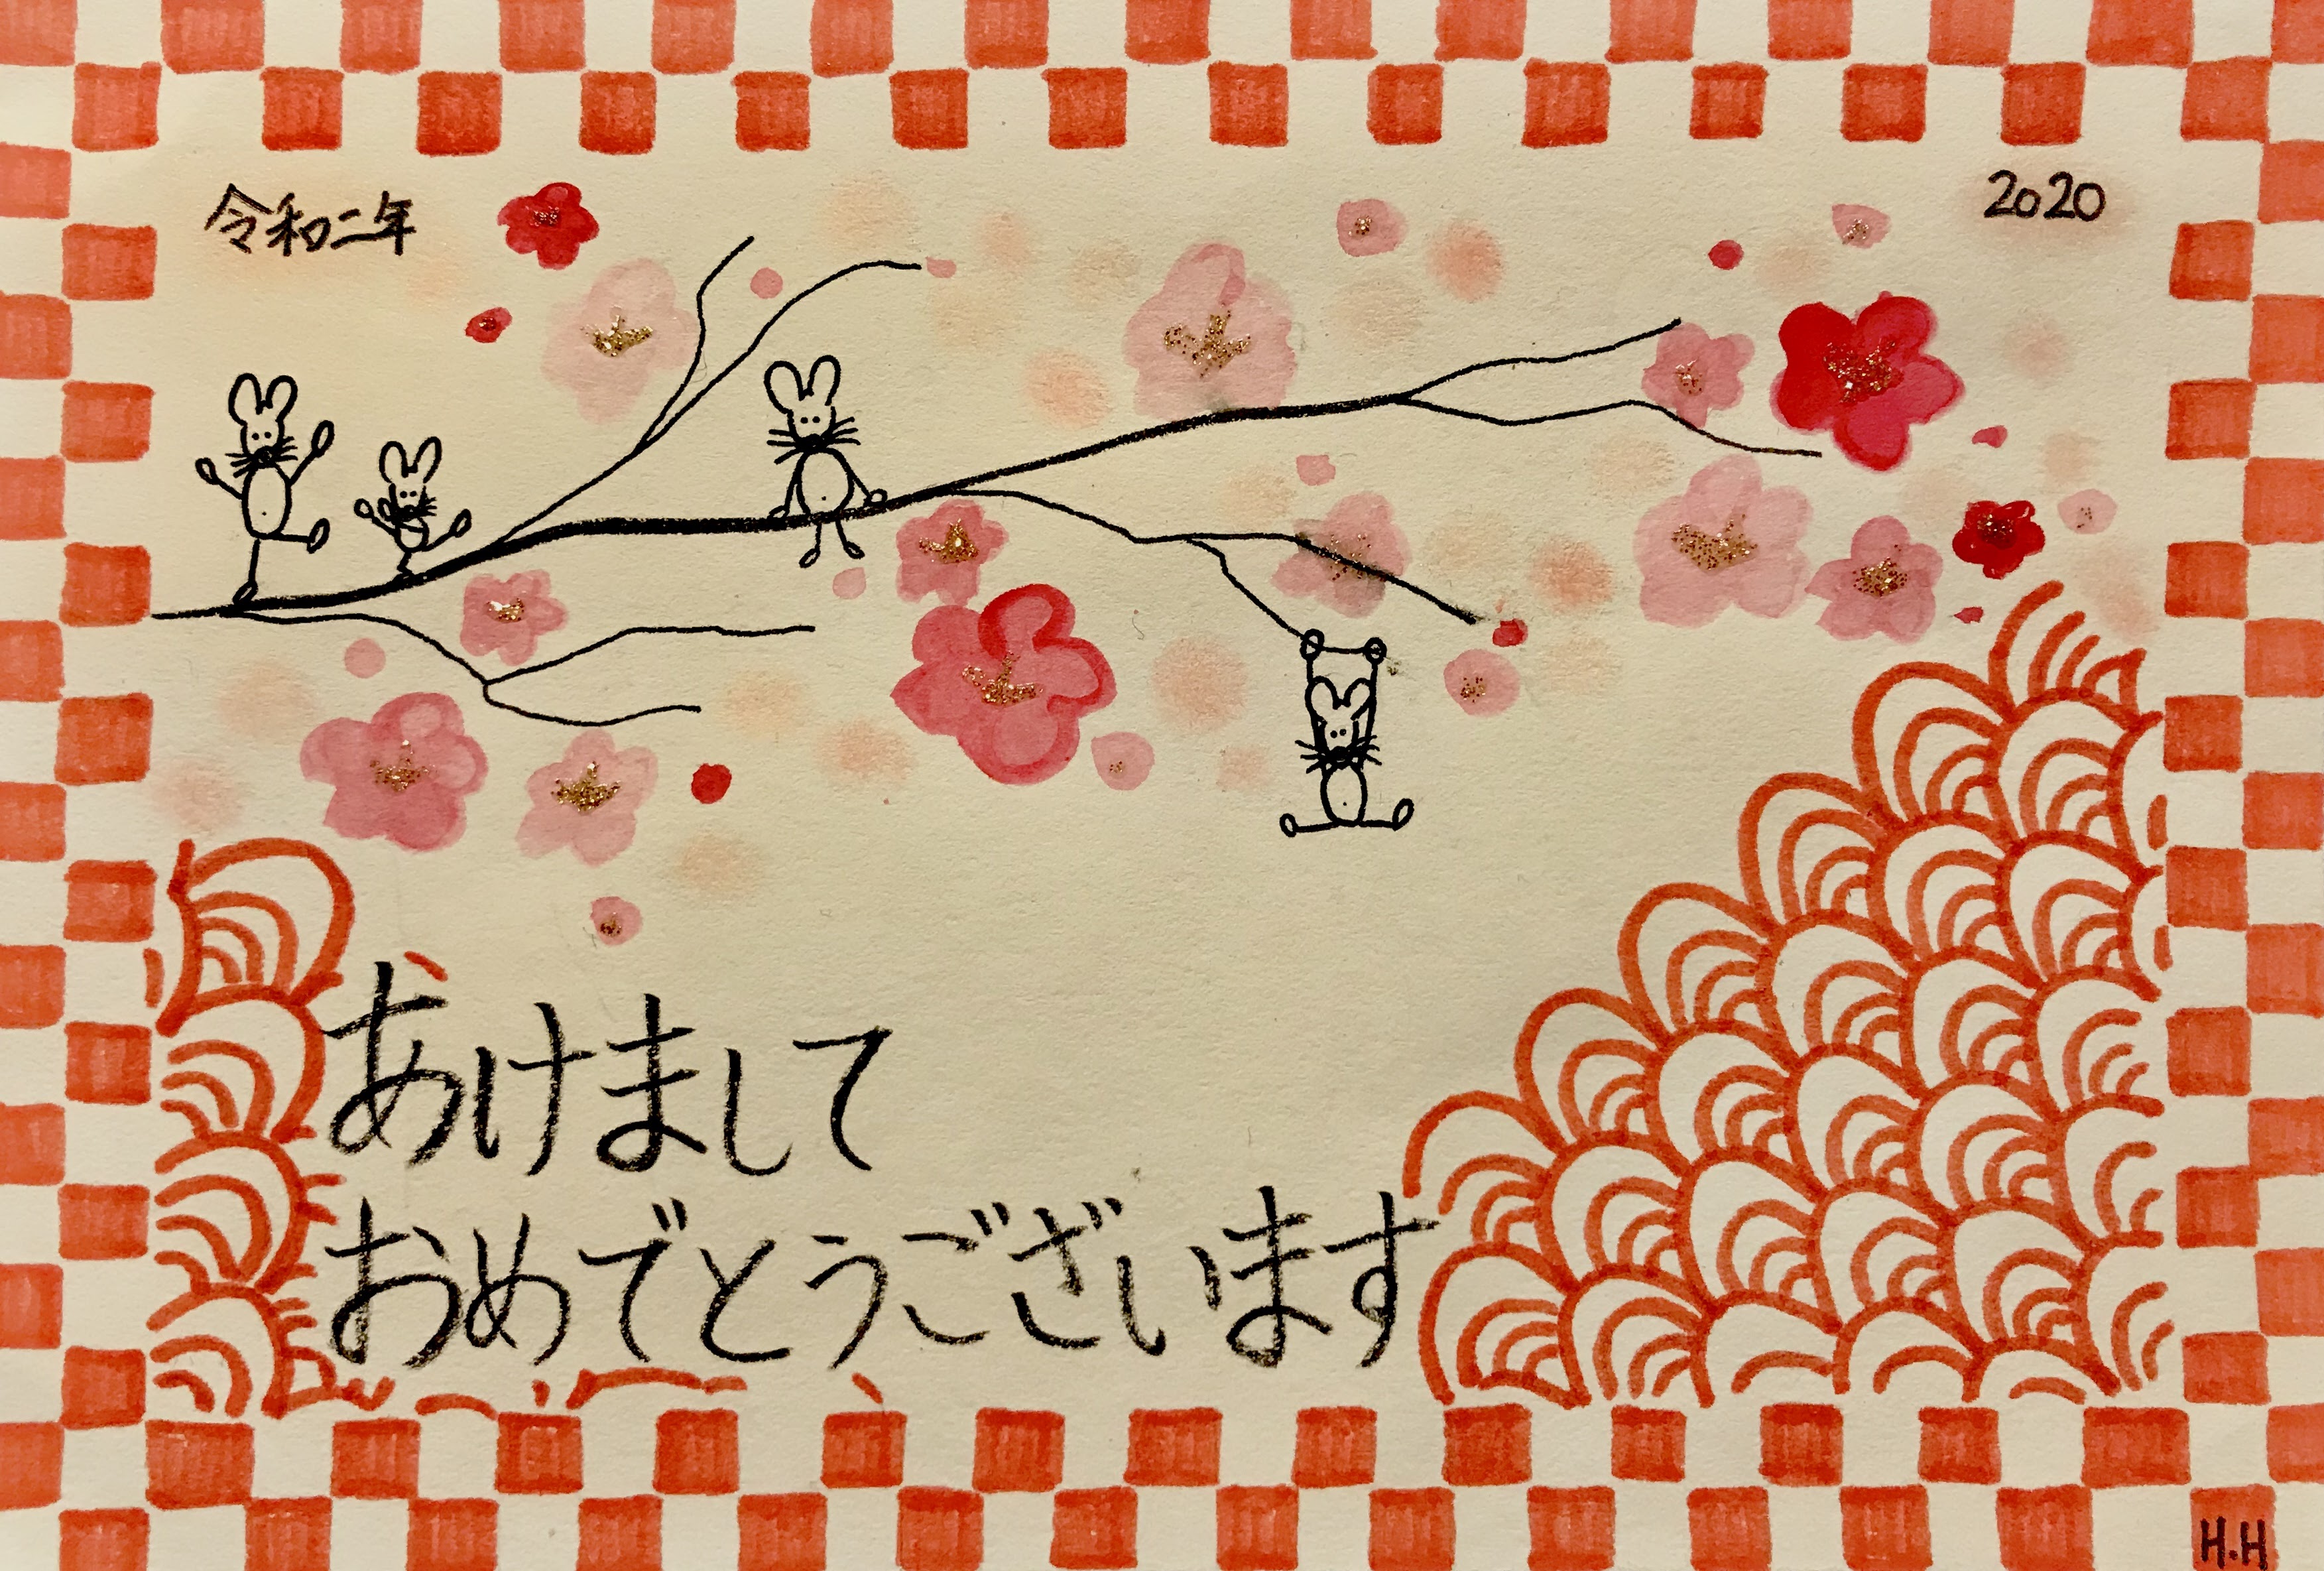 令和二年
2020
あけまして
おめでとうございます
H.H